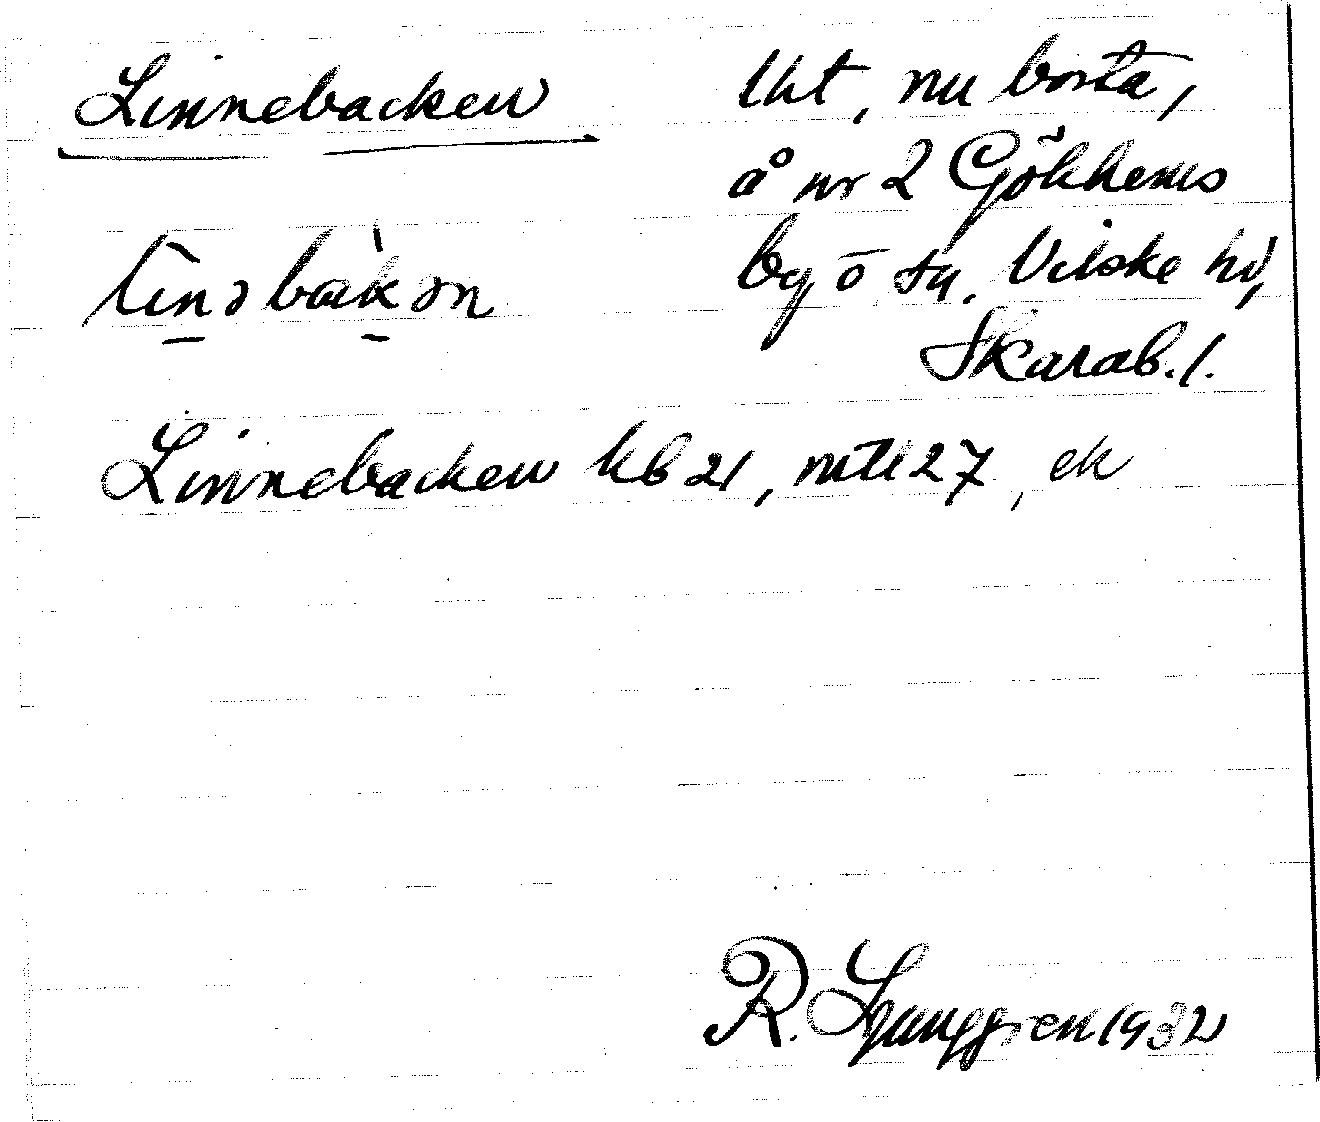 Linnebacken
lht, nu borta,
å nr 2 Gökhems
by o sn. Vilske hd,
Skarab. l.
Linnebacken kb 21, mtl 27, ek
R. Ljunggren 1932